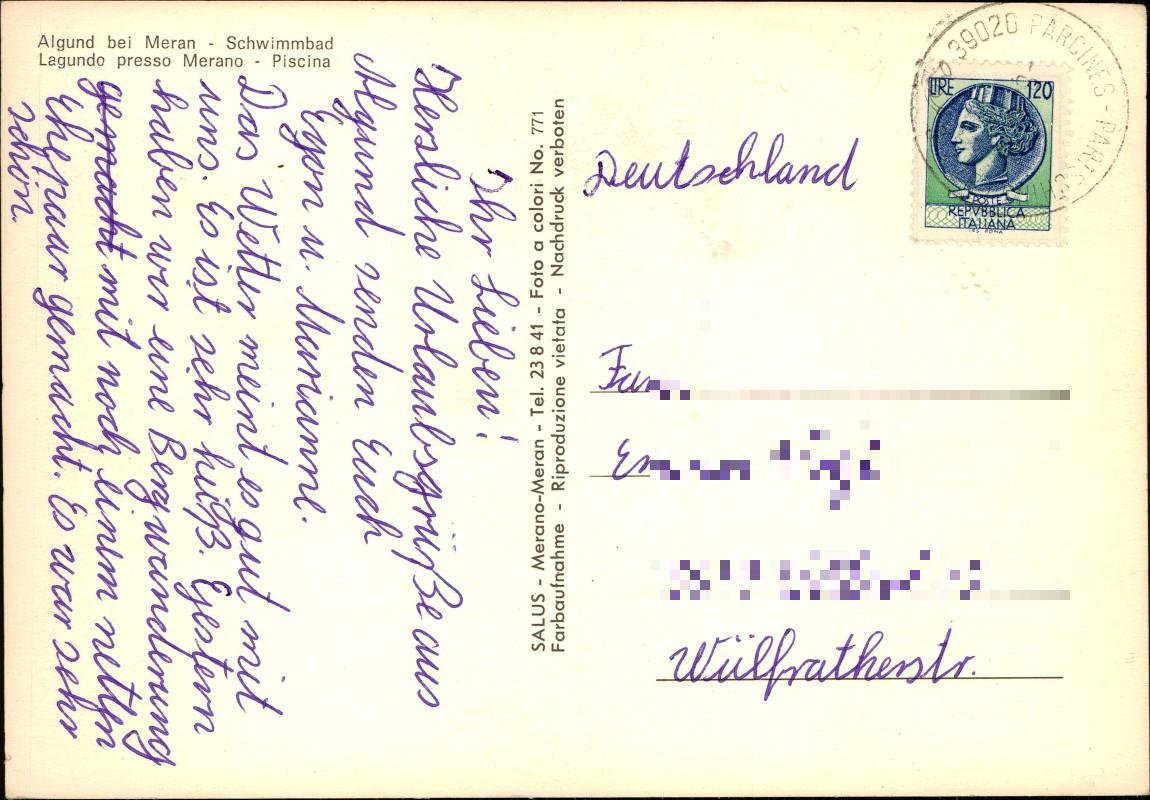 Algund bei Meran - Schwimmbad
Lagundo presso Merano - Piscina
Ihr Lieben!
Herzliche Urlaubsgrüße aus
Algund senden Euch
Egon u. Marianne.
Das Wetter meint es gut mit
uns. Es ist sehr heiß. Gestern
haben wir eine Bergwanderung
gemacht mit noch einem netten
Ehepaar gemacht. Es war sehr
schön.
SALUS - Merano-Meran - Tel. 23 8 41 - Foto a colori No. 771
Farbaufnahme - Riproduzione vietata - Nachdruck verboten
39020 PARCINES - PARTSCHINS
LIRE 120
POSTE
REPVBBLICA
ITALIANA
Deutschland
Fam
Wülfratherstr.